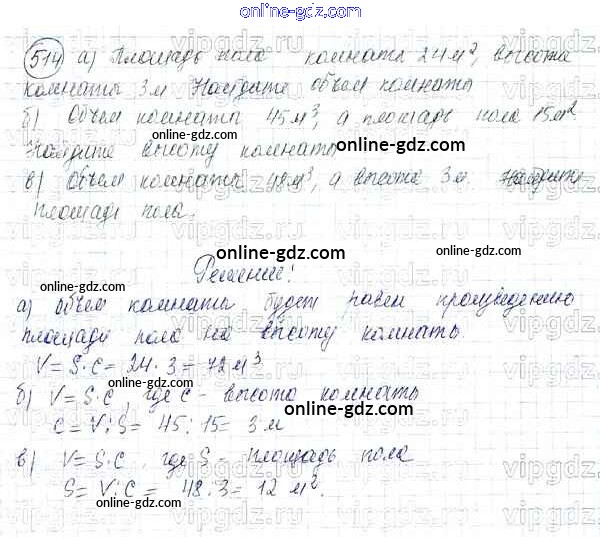 online-gdz.com
514 а) Площадь пола комнаты 24 м², высота
комнаты 3 м Найдите объем комнаты
б) Объем комнаты 45 м³, а площадь пола 15 м²
Найдите высоту комнаты
online-gdz.com
online-gdz.com
в) Объем комнаты 48 м³, а высота 3 м. Найдите
online-gdz.com
площадь пола.
online-gdz.com
online-gdz.com
Решение:
online-gdz.com
а) объем комнаты будет равен произведению
площади пола на высоту комнаты.
V = S · C = 24 · 3 = 72 м³
online-gdz.com
online-gdz.com
б) V = S · C, где C - высота комнаты
online-gdz.com
C = V : S = 45 : 15 = 3 м
в) V = S · C, где S - площадь пола
S = V : C = 48 : 3 = 12 м².
online-gdz.com
online-gdz.com